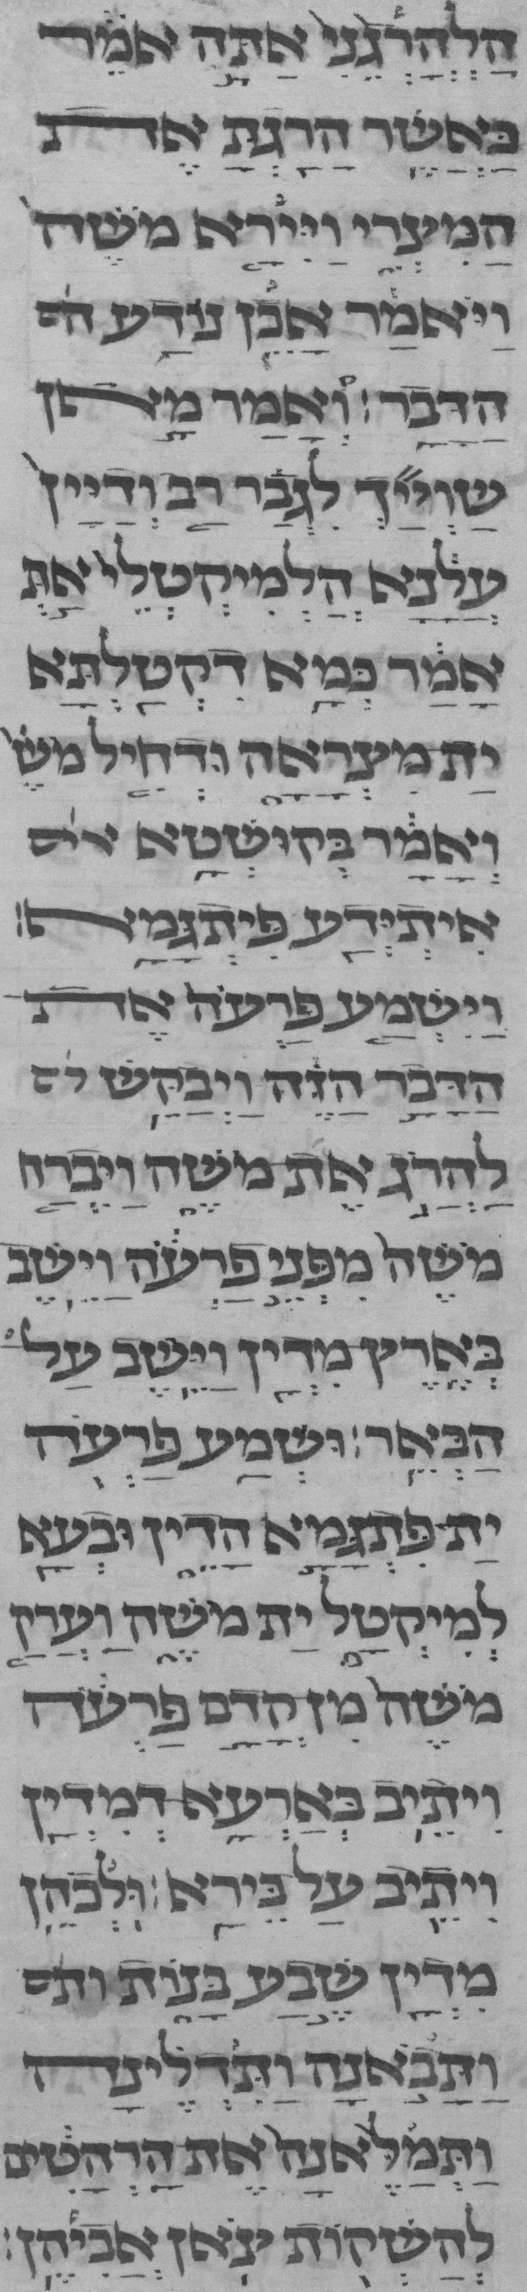 הלהרגני אתה אמר
כאשר הרגת את
המצרי ויירא משה
ויאמר אכן נודע ה
הדבר: ואמר מאן
שוייך לגבר רב ודיין
עלנא הלמיקטלי את
אמר כמא דקטלתא
ית מצראה ודחיל מש
ואמר בקושטא א
איתידע פיתגמא:
וישמע פרעה את
הדבר הזה ויבקש ל
להרג את משה ויברח
משה מפני פרעה וישב
בארץ מדין וישב על
הבאר: ושמע פרעה
ית פתגמא הדין ובעא
למיקטל ית משה וערק
משה מן קדם פרעה
ויתיב בארעא דמדין
ויתיב על בירא: ולכהן
מדין שבע בנות ות
ותבאנה ותדלינה
ותמלאנה את הרהטים
להשקות צאן אביהן: